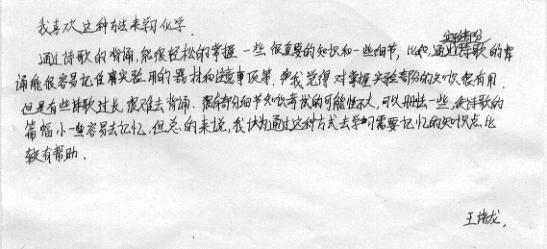 我喜欢这种方法来学习化学.
通过诗歌的背诵,能很轻松的掌握一些很重要的知识和一些细节,比如,实验部分通过诗歌的背
诵能很容易记住实验用的器材和注意事项等,我觉得对掌握实验部分的知识很有用.
但是有些诗歌过长,很难去背诵.部分细节知识考试的可能性不大,可以删去一些,使诗歌的
篇幅小一些容易去记忆,但总的来说,我认为通过这种方式去学习需要记忆的知识点比
较有帮助.
王龙.